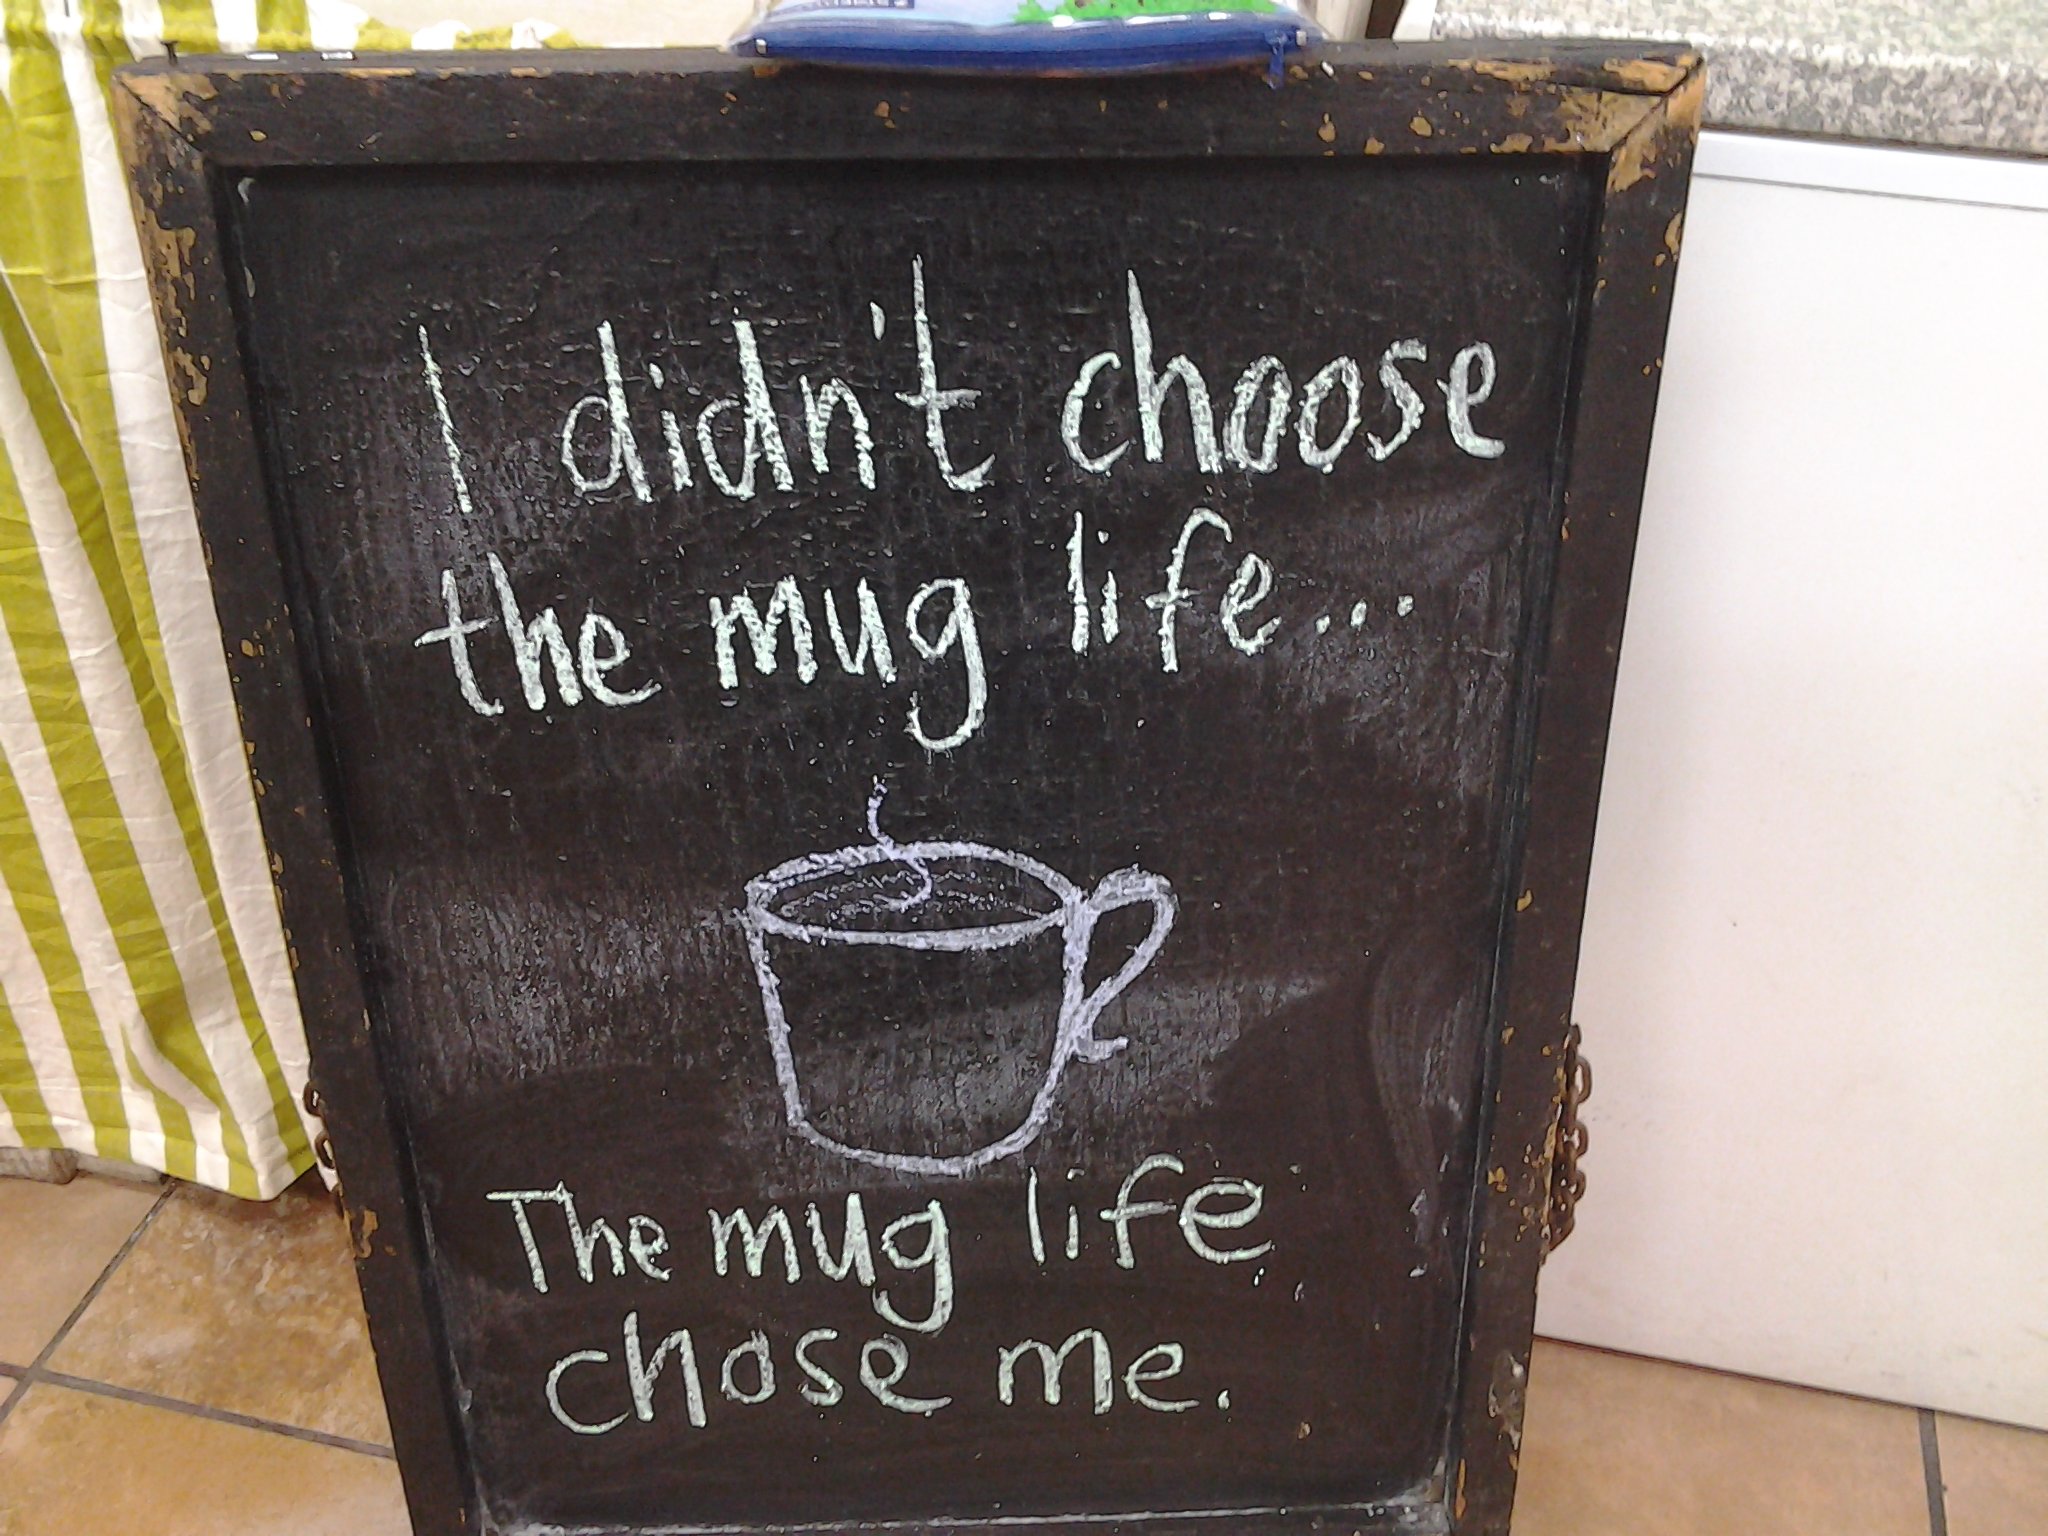 I didn't choose
the mug life...
The mug life
chose me.